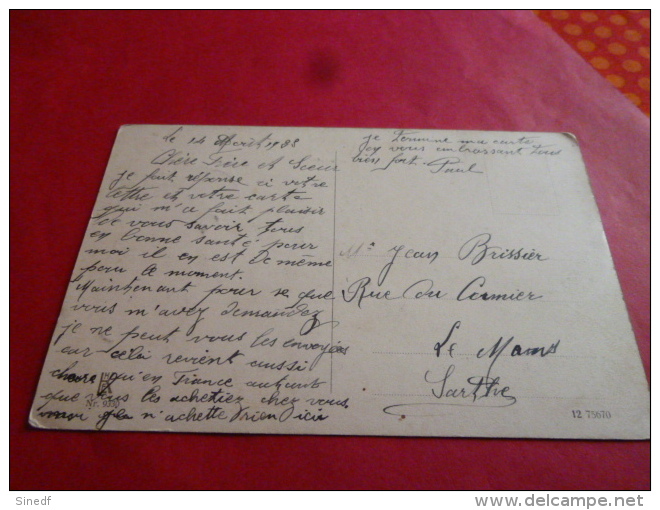 le 14 Août 1923
Chère Frère et Soeur
je fait réponse à votre
lettre et votre carte
qui m'a fait plaisir
de vous savoir tous
en bonne santé pour
moi il en est de même
pour le moment.
Maintenant pour se que
vous m'avez demandez
je ne peut vous les envoyées
car cela revient aussi
chere qu'en France autant
que vous les achetiez chez vous
moi n'achette rien d'ici
je termine ma carte
en vous embrassant tous
bien fort Paul
Mr Jean Brissier
Rue du Cormier
Le Mans
Sarthe
12 75670
Sinedf
http://www.delcampe.net